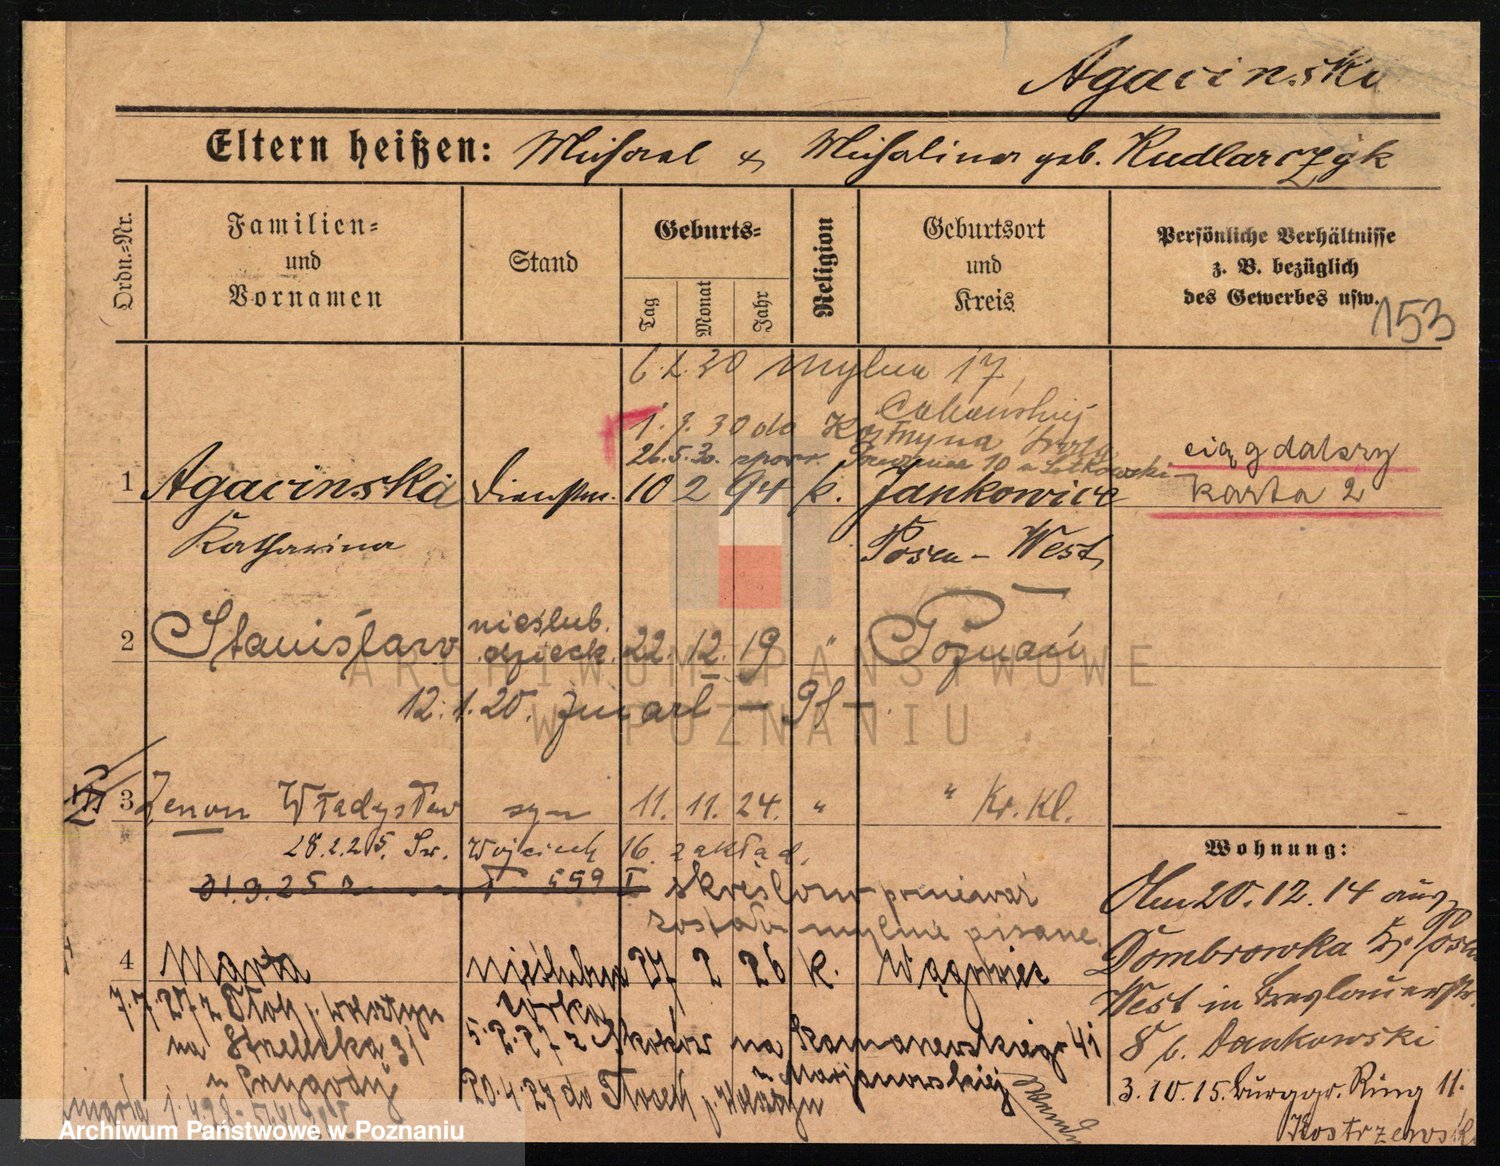 Agacinska
Eltern heißen: Michael & Michalina geb. Kudlarczyk
Ordn.-Nr.
Familien-
und
Vornamen
Stand
Geburts-
Tag
Monat
Jahr
Religion
Geburtsort
und
Kreis
Persönliche Verhältnisse
z. B. bezüglich
des Gewerbes usw.
153
6.2.30 Mylna 17,
1. 3. 30 do
26.5.30.
ciąg dalszy
karta 2
1 Agacinska 10 2 94 k. Jankowice
Katharina
Posen - West
2 Stanisław nieślub. dzieck. 22. 12. 19 " Poznań
12.1.20. zmarł —
3 Zenon Władysław syn 11. 11. 24. " " Kr. Kl.
28.2.25. Św. Wojciech 16. zakład.
31.3.25 599 I skreślono ponieważ
zostało mylnie pisane.
4 Marta nieślubna córka 27 2 26 k. Wągrowiec
7.7.27 z
na Strzelecka 31
5.2.27 z Skoków na 41
u Marjanowskiej
20.4.27 do
Wohnung:
Am 20.12.14 aus
Dombrowka Kr. Posen
West in Breslauerstr.
8 b. Dankowski
3.10.15. Burggr. Ring 11.
Kostrzewski
ARCHIWUM PAŃSTWOWE
W POZNANIU
Archiwum Państwowe w Poznaniu